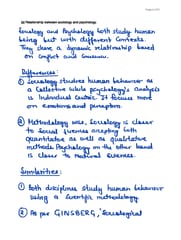 (a) Relationship between sociology and psychology.
Sociology and Psychology both study human
being but with different contexts.
They share a dynamic relationship based
on conflict and consensus.
Differences :
① Sociology studies human behaviour as
a collective while psychology's analysis
is Individual centric. It focuses more
on emotions and perception.
② Methodology wise, Sociology is closer
to Social Sciences accepting both
quantitative as well as qualitative
methods. Psychology on the other hand
is closer to natural sciences.
Similarities :
① Both disciplines study human behaviour
using a scientific methodology.
② As per GINSBERG, Sociological